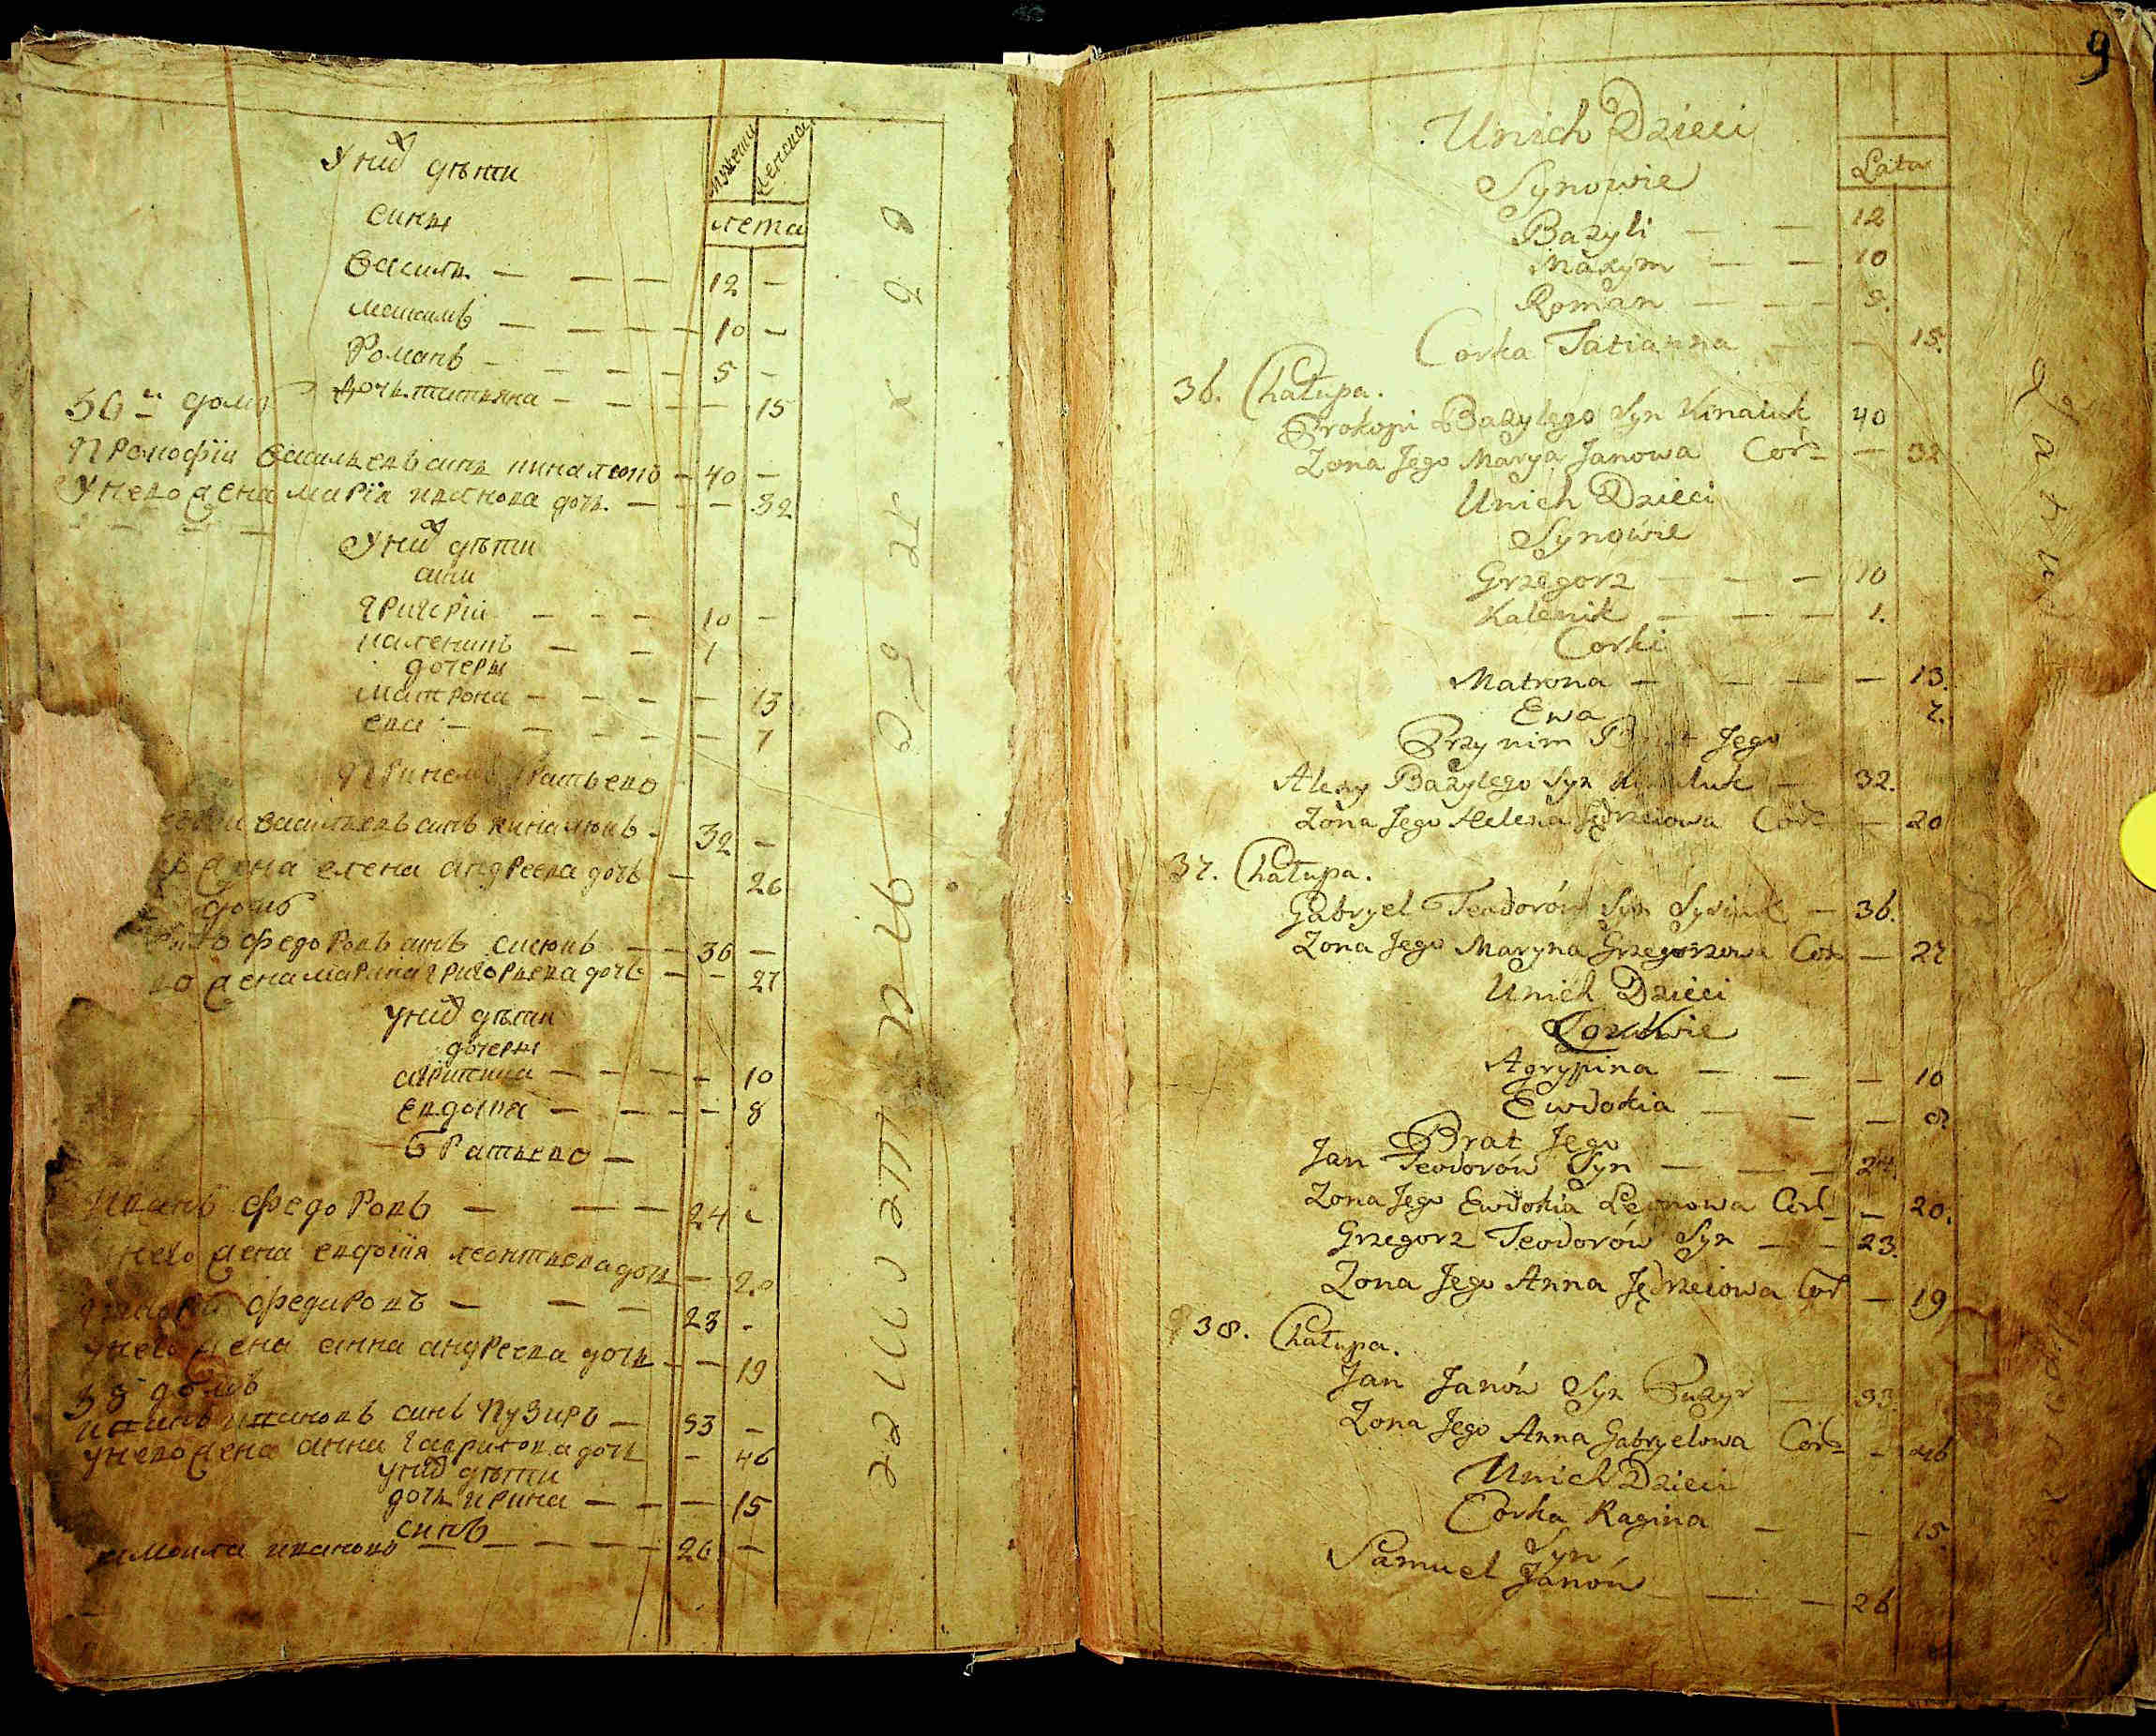 У них дѣти
мужеска
женска
сины
лета
Василь — — — 12 —
Максимъ — — — — 10 —
Романъ — — — — 5 —
дочь татьяна — — — — 15
36й домъ
Прокофiй Васильевъ синъ киналюкъ — 40 —
У него жена Марiя иванова дочь — — — 32
У них дѣти
сини
григорiй — — — 10 —
каленикъ — — 1
дочеры
матрона — — — — 13
ева — — — — — 7
При нем братъ его
Васильевъ синъ киналюкъ - 32 —
жена елена андреева дочь — 26
домъ
федоровъ синъ сисюкъ — — 36 —
жена марина григорьева дочь — — 27
у них дѣти
дочеры
агрипина — — — — 10
евдокиа — — — — 8
братъ его —
иванъ федоровъ — — — 24
у него жена евдокiя леонтьева дочь — 20
григорiй федоровъ — — — 23 -
у него жена анна андреева дочь — — 19
38 домъ
иванъ ивановъ синъ Пузиръ — 53 —
у него жена анна гаврилова дочь — 46
у них дѣти
дочь ирина — — — 15
синъ
самойла ивановъ — — — — — 26 —
9
Unich Dzieci
Lata
Synowie
Bazyli — — 12
Maxym — — 10
Roman — — — 5.
Corka Tatianna — — 15.
36. Chałupa.
Prokopi Bazylego Syn Kinaluk 40
Zona Jego Marya Janowa Cor: — 32
Unich Dzieci
Synowie
Grzegorz — — — 10
Kalenik — — — 1.
Corki
Matrona — — — — 13.
Ewa 7.
Przy nim Brat Jego
Alexy Bazylego Syn Kinaluk — 32.
Zona Jego Helena Jędrzeiowa Cor: — 20
37. Chałupa.
Gabryel Teodorów Syn Sysiuk — 36.
Zona Jego Maryna Grzegorzowa Cor: — 27
Unich Dzieci
Agrypina — — — 10
Ewdokia — — — 8
Brat Jego
Jan Teodorów Syn — — — 24.
Zona Jego Ewdokia Leonowa Cor: — 20.
Grzegorz Teodorów Syn — — 23.
Zona Jego Anna Jędrzeiowa Cor: — 19
38. Chałupa.
Jan Janów Syn Puzyr — 53.
Zona Jego Anna Gabryelowa Cor: - 46
Unich Dzieci
Corka Ragina — — 15.
Syn
Samuel Janów — — — 26